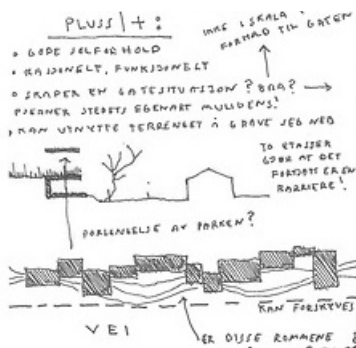 PLUSS / + :
• GODE SOLFORHOLD
• RASJONELT, FUNKSJONELT
• SKAPER EN GATESITUASJON? BRA?
FJERNER STEDETS EGENART MULIGENS!
• KAN UTNYTTE TERRENGET Å GRAVE SEG NED
IKKE I SKALA
FORHOLD TIL GATEN
TO ETASJER
GJØR AT DET
FORTSATT ER EN
BARRIERE!
FORLENGELSE AV PARKEN?
KAN FORSKYVES
VEI
ER DISSE ROMMENE